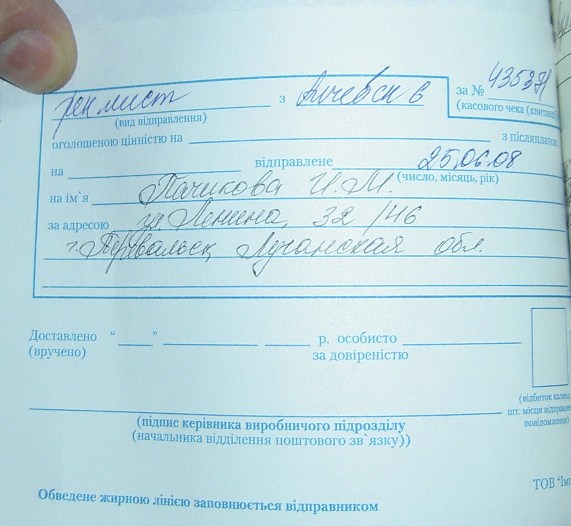 рек лист з Алчевск 6 за № 435371
(вид відправлення) (касового чека (квитанції)
оголошеною цінністю на з післяплатою
на відправлене 25.06.08
(число, місяць, рік)
на ім`я Пачикова И.М.
за адресою ул. Ленина, 32/46
г. Перевальск Луганская обл.
Доставлено “ ” р. особисто
(вручено) за довіреністю
(відбиток календ.
шт. місця відправлен
повідомлення)
(підпис керівника виробничого підрозділу
(начальника відділення поштового зв`язку))
ТОВ "Імп
Обведене жирною лінією заповнюється відправником